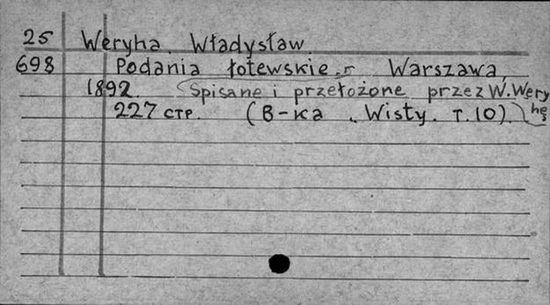 25 Weryha Władysław.
698 Podania łotewskie. Warszawa,
1892. (Spisane i przełożone przez W. Wery
227 стр. (B-ka „Wisły". T. 10).) hę